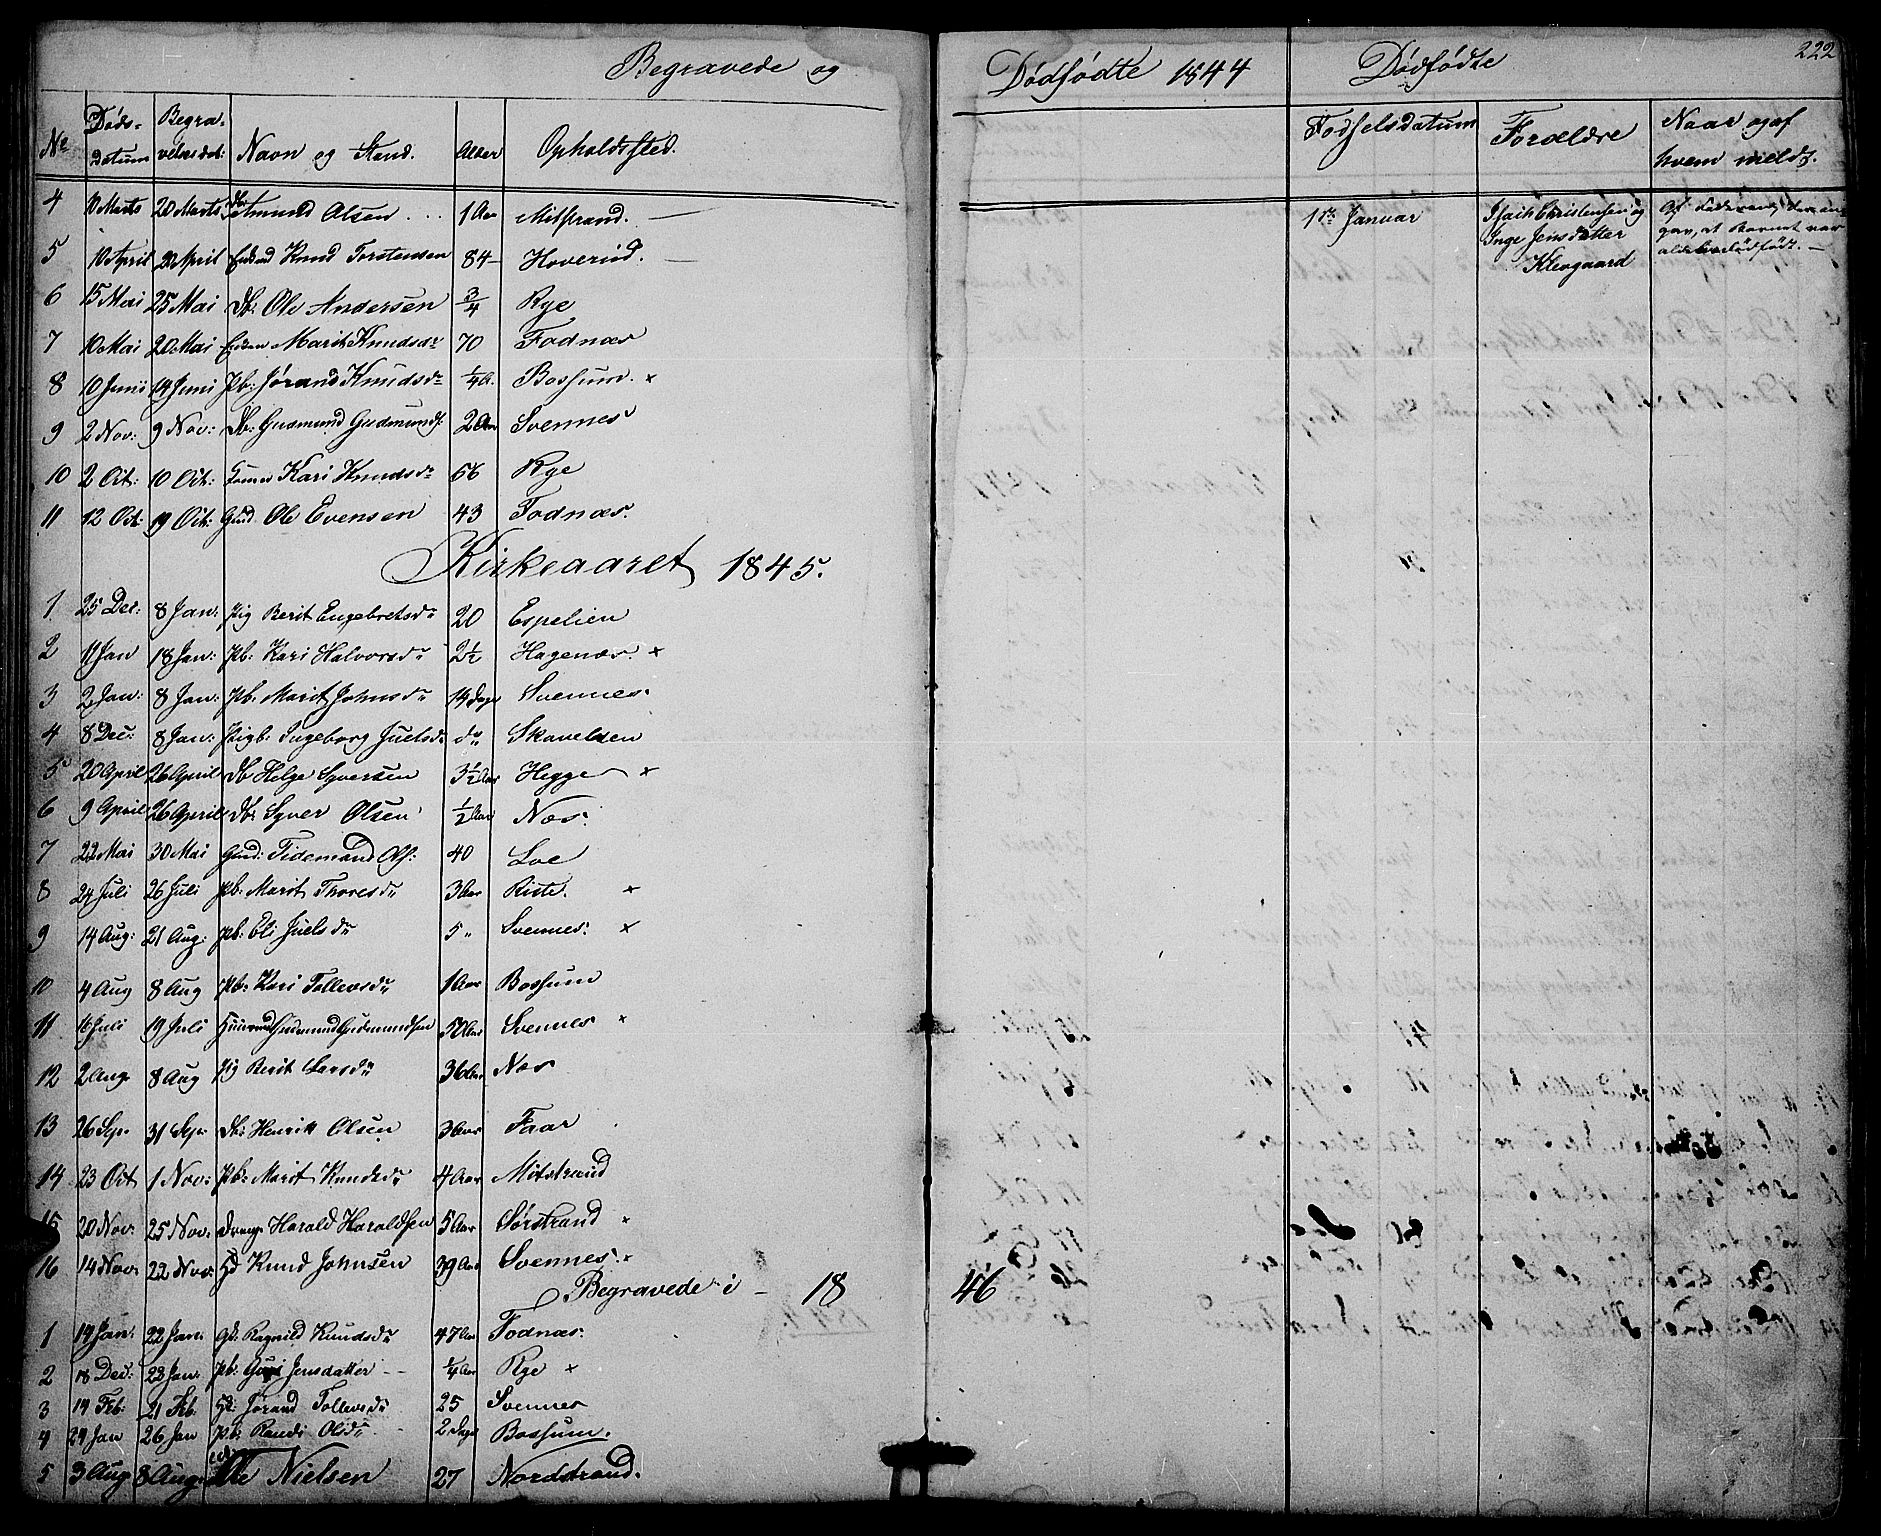 Begravede og Dødfødte 1844 Dødfødte 222
No Døds-Datum Begravelsesdat: Navn og Stand. Alder Opholdssted. Fødselsdatum Forældre Naar og af hvem meldt.
4 10 Marts 20 Marts Db: Amund Olsen 1 Aar Midstrand.
5 10 April 20 April Knud Torstensen 84 Hoverud.
6 15 Mai 25 Mai Db: Ole Andersen 3/4 Rye
7 10 Mai 20 Mai Enken Marit Knudsdr 70 Fodnæs
8 10 Juni 14 Juni Pb: Jørand Knudsdr 1/4 A. Bossum. x
9 2 Nov: 9 Nov: Db: Gudmund Gudmunds: 2 Aar Svennes
10 2 Oct: 10 Oct: Kari Knudsdr 66 Rye
11 12 Oct: 19 Oct: Gmd Ole Evensen 43 Fodnæs.
1ste Januar
Isach Christensen og
Inge Jensdatter
Klevgaard
Af Faderen, der angav, at Barnet var dødfødt. —
Kirkeaaret 1845.
1 25 Dec: 8 Jan: Pig Berit Engebretsdr 20 Espelien
2 11 Jan 18 Jan: Pb: Kari Halvorsdr 2½ Hagenæs. x
3 2 Jan: 8 Jan: Pb: Marit Johnsdr 14 Dage Svennes.
4 8 Dec: 8 Jan: Pigb: Ingeborg Juelsdr do Skavelsen
5 20 April 26 April Db Helge Syversen 3½ Aar Hegge x
6 9 April 26 April Db: Syver Olsen ½ Aar Næs.
7 22 Mai 30 Mai Gmd: Tidemand Ols: 40 Loe
8 24 Juli 26 Juli Pb: Marit Thoresdr 3 Aar Riste. x
9 14 Aug: 21 Aug: Pb: Eli Juelsdr 5 " Svennes. x
10 4 Aug 8 Aug Pb: Kari Tollevsdr 1 Aar Bossum
11 16 Juli 19 Juli Gudmund Gudmundsen 50 Aar Svennes x
12 2 Aug 8 Aug Pig Berit Larsdr 36 Aar Næs
13 26 Sep. 31 Sep. Db: Henrik Olsen 3 Aar Faar
14 23 Oct 1 Nov: Pb: Marit Knudsdr 4 Aar Midstrand
15 20 Nov: 25 Nov: Dreng Harald Haraldsen 5 Aar Sørstrand x
16 14 Nov: 22 Nov: Gd Knud Johnsen 39 Aar Svennes. x
Begravede i — 18 46
1 14 Jan: 22 Jan: Gk: Ragnild Knudsdr 47 Aar Fodnæs.
2 18 Dec: 23 Jan: Pb: Guri Jensdatter ¼ Aar Rye x
3 14 Feb: 21 Feb. Jørand Tollevsdr 25 Svennes
4 24 Jan 26 Jan Pb: Randi Olsdr 2 Dage Bossum.
5 3 Aug 8 Aug: Ole Nielsen 27 Nordstrand.